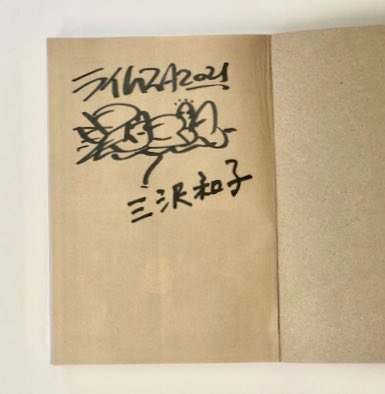 ライムスター2021
三沢和子